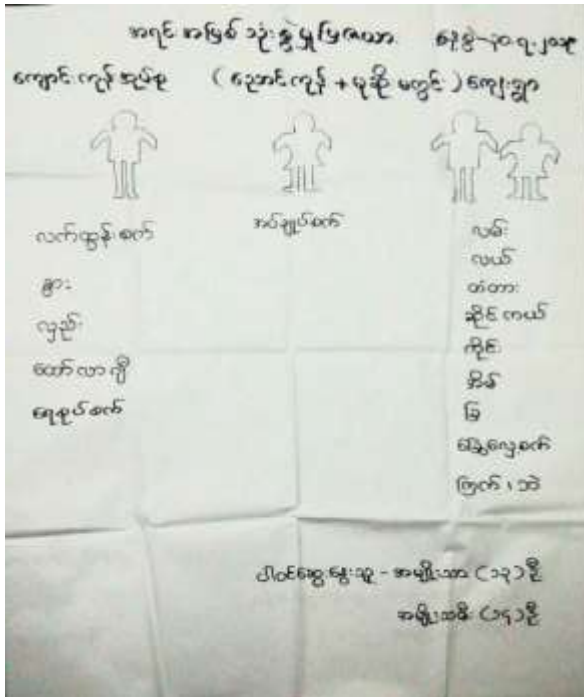 အရင်းအမြစ် သုံးစွဲမှုပြဇယား နေ့စွဲ-၃၀.၇.၂၀၁၉
ကျောင်းကုန်းအုပ်စု (ညောင်ကုန်း + မုဆိုးမတွင်း) ကျေးရွာ
လက်တွန်းစက်
နွား
လှည်း
ထော်လာဂျီ
ရေစုပ်စက်
အပ်ချုပ်စက်
လမ်း
လယ်
တံတား
ဆိုင်ကယ်
ကိုင်း
အိမ်
ခြံ
ခြွေလှေ့စက်
ကြက်၊ ဘဲ
ပါဝင်ဆွေးနွေးသူ - အမျိုးသား (၁၃)ဦး
အမျိုးသမီး (၁၄)ဦး